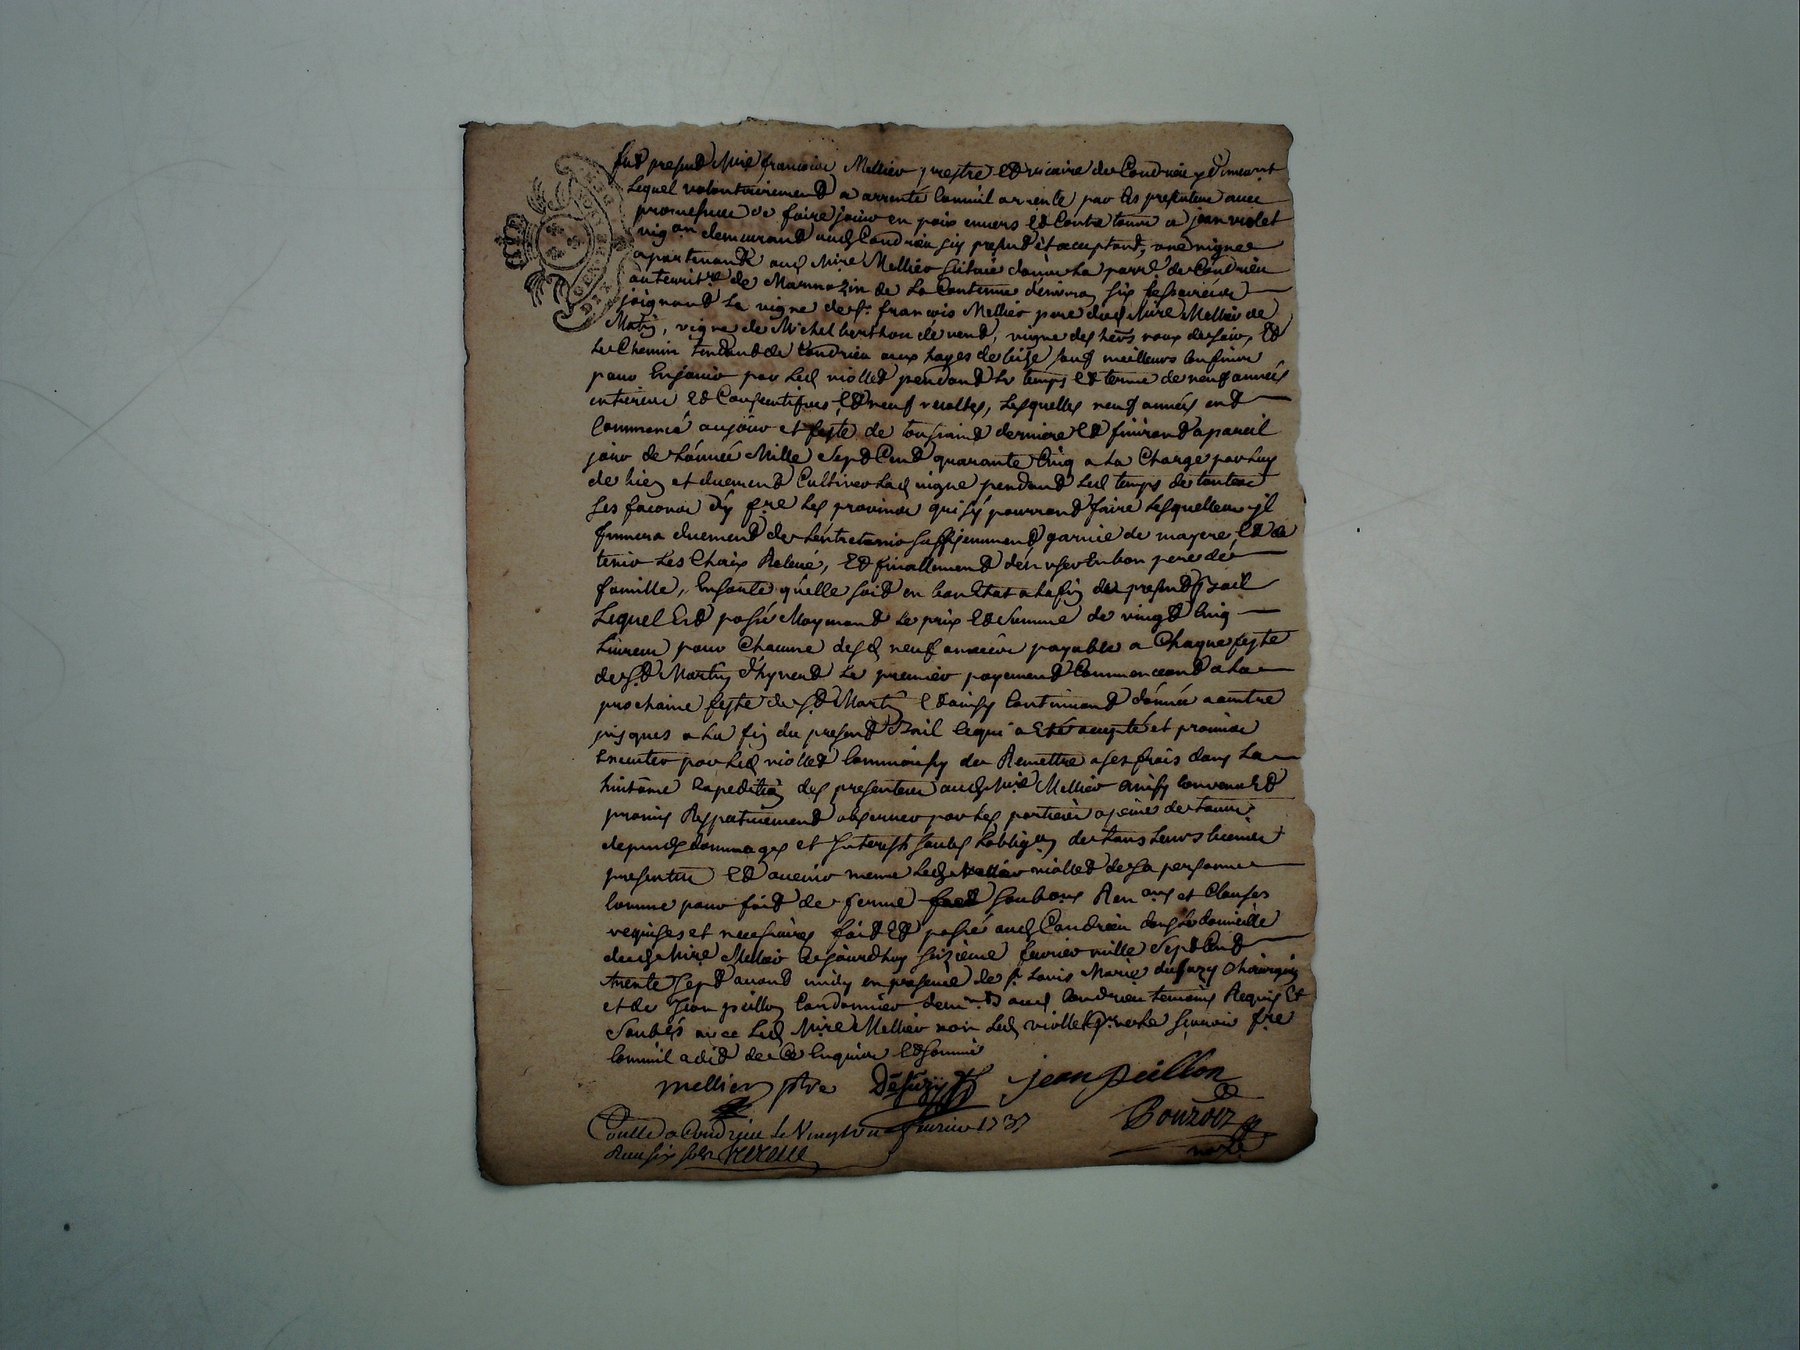 fut present Mre francois Mellier prestre et vicaire de Condrieu y demeurant
Lequel volontairement a arrenté comme il arrente par les presentes avec
promesse de faire jouir en paix envers et contre tous a jean violet
vigon demeurant aud Condrieu icy present et acceptant, une vigne
apartenant aud Mre Mellier scituée dans la parr.e de Condrieu
au territ.re de Marmozin de la Contenue denviron six
joignant La vigne de Sr francois Mellier pere dud Mre Mellier de
vigne de Michel berthon de vend, vigne des hers roux de soir, et
le Chemin tendant de Condrieu aux hayes de bize sauf meilleurs confins
pour En jouir par Led viollet pendant le temps et terme de neuf années
entieres et Consecutives et neuf recoltes, Lesquelles neuf années ont
Commencé au jour et feste de toussaint derniere et finiront a pareil
jour de Lannée Mille Sept Cent quarante Cinq a la Charge par luy
de bien et duement Cultiver Lad vigne pendant Led temps de toutes
ses facons d'y fre les provins qui s'y pourront faire Lesquelles il
fumera duement de Lentretenir suffisemment garnie de et de
tenir Les Relevé, Et finallement d'en user En bon pere de
famille, En sorte qu'elle soit en bon Etat a la fin du present Bail
Lequel Est passé Moyenant le prix et Somme de vingt Cinq
Livres pour Chacune desd neuf années payable a Chaque feste
de St Martin d'hyvert Le premier payement Commenceant a la
prochaine feste de St Martin et ainsy Continuant d'année a autre
jusques a La fin du present Bail ce qui a Eté accepté et promis
Executer par Led viollet Comme aussy de Remettre a ses frais dans La
huitaine Expedition des presentes aud Mre Mellier ainsy convenu et
promis Respectivement observer par Les parties a peine de tous
depends dommages et Interests sous Lobligaon de tous Leurs biens
presents et avenir meme Led viollet de sa personne
Comme pour fait de ferme soub. ons Ren ons et Clauses
requises et necessaires fait et passé aud Condrieu dans le domicille
dud Mre Mellier ce jourdhuy seizieme fevrier mille Sept Cent
trente Sept avant midy en presence de Sr Louis Marie dufuzy Chirurgien
et de Jean peillon Cordonnier demts aud Condrieu temoins Requis et
Soubsés avec Led Mre Mellier non Led viollet pr ne le scavoir fre
Comme il a dit de ce Enquis et Sommé
mellier ptre Defuzy jean peillon
Coullé a Condrieu Le Vingt fevrier 1737 Bourdez
Receu six sols nore